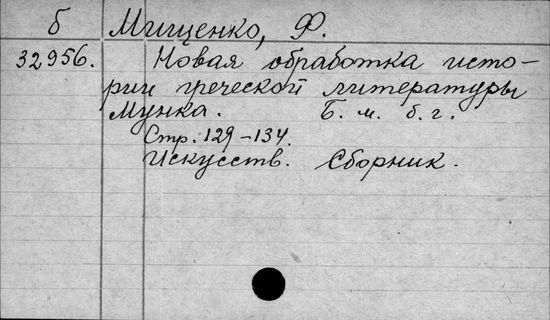 б Мищенко, Ф.
32956. Новая обработка исто-
рии греческой литературы
Мунка. Б. м. б. г.
Стр. 129-134.
Искусств. Сборник.